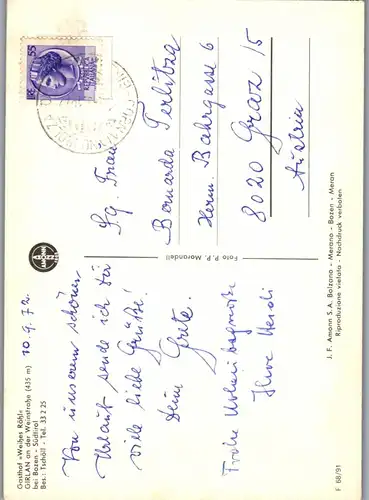 Gasthof »Weißes Rößl«
GIRLAN an der Weinstraße (435 m)
bei Bozen - Südtirol
Bes.: Tschöll - Tel. 33 2 25
10.9.72
Von unserem schönen
Urlaub sende ich Dir
viele liebe Grüße!
Deine Grete.
Frohe Urlaubsgrüße
Ihre Heidi
AMONN
Foto P. P. Morandell
L. 55
S.g. Frau
Bernarda Terlitza
Herm. Bahrgasse 6
8020 Graz 15
Austria
F 68/91
J. F. Amonn S.A. Bolzano - Merano - Bozen - Meran
Riproduzione vietata - Nachdruck verboten